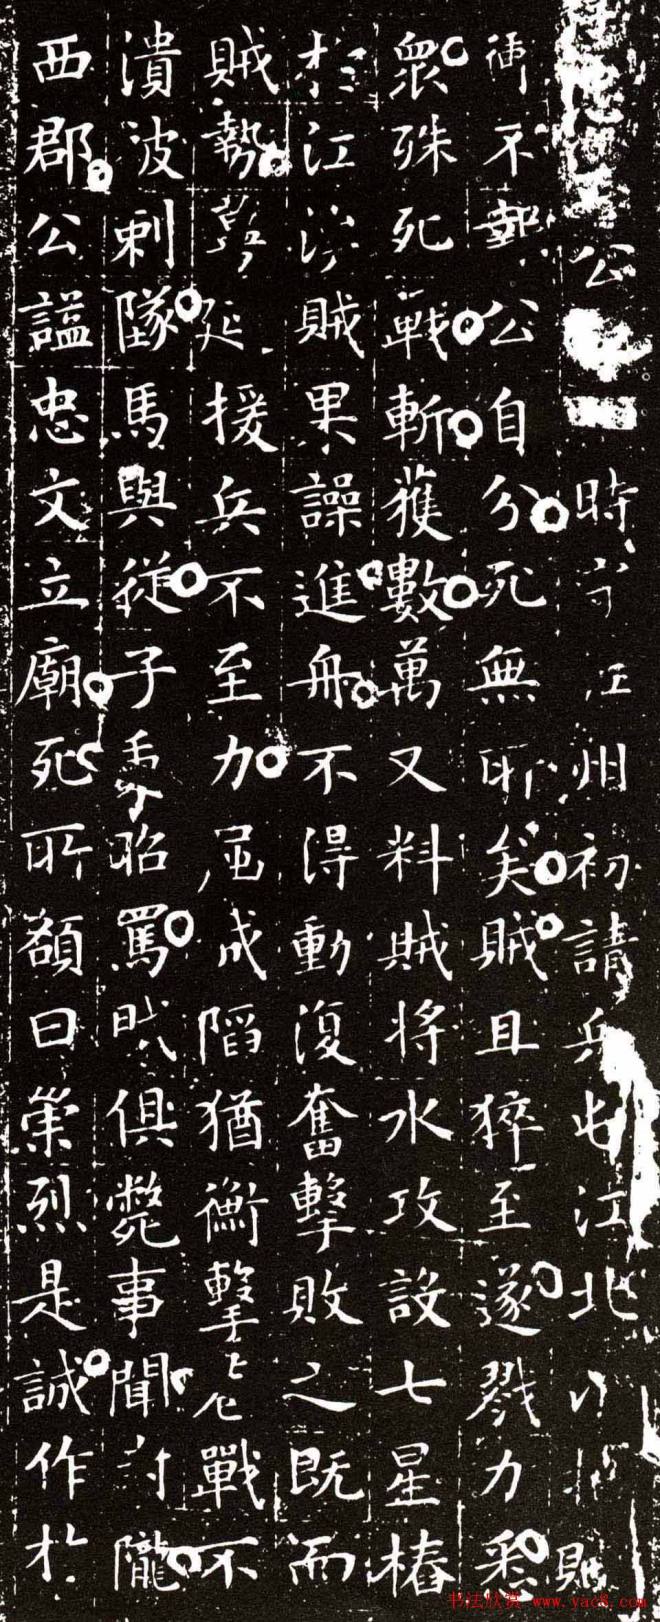 公時守江州初請兵屯江北以扼賊
衝不報公自分死無所矣賊且猝至遂戮力悉
衆殊死戰斬獲數萬又料賊將水攻設七星樁
於江涘賊果譟進舟不得動復奮擊敗之既而
賊勢蔓延援兵不至力屈成陷猶衝擊巷戰不
潰波刺墜馬與從子秉昭罵賊俱斃事聞封隴
西郡公謚忠文立廟死所額曰崇烈是誠作於
书法欣赏 www.yac8.com